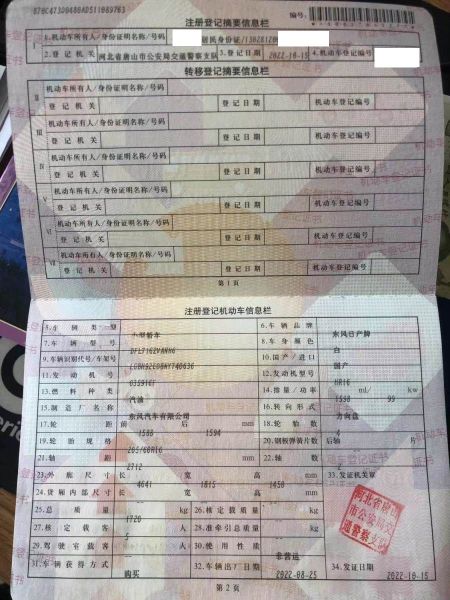 注册登记摘要信息栏
编号:
1.机动车所有人/身份证明名称/号码 居民身份证/
2.登记机关 河北省唐山市公安局交通警察支队 3.登记日期 2022-10-15 4.机动车登记编号
转移登记摘要信息栏
Ⅱ 机动车所有人/身份证明名称/号码
登记机关 登记日期 机动车登记编号
Ⅲ 机动车所有人/身份证明名称/号码
登记机关 登记日期 机动车登记编号
Ⅳ 机动车所有人/身份证明名称/号码
登记机关 登记日期 机动车登记编号
Ⅴ 机动车所有人/身份证明名称/号码
登记机关 登记日期 机动车登记编号
Ⅵ 机动车所有人/身份证明名称/号码
登记机关 登记日期 机动车登记编号
Ⅶ 机动车所有人/身份证明名称/号码
登记机关 登记日期 机动车登记编号
第1页
注册登记机动车信息栏
5.车辆类型 小型轿车 6.车辆品牌 东风日产牌
7.车辆型号 8.车身颜色 白
9.车辆识别代号/车架号 10.国产/进口 国产
11.发动机号 12.发动机型号 HR16
13.燃料种类 汽油 14.排量/功率 1598 ml/ 99 kw
15.制造厂名称 东风汽车有限公司 16.转向形式 方向盘
17.轮距 前 1588 后 1594 mm 18.轮胎数
19.轮胎规格 205/60R16 20.钢板弹簧片数 后轴 片
21.轴距 2712 mm 22.轴数 2
23.外廓尺寸 长 4641 宽 1815 高 1450 mm 33.发证机关章
24.货厢内部尺寸 长 宽 高 mm
25.总质量 1720 kg 26.核定载质量 kg
27.核定载客 5 人 28.准牵引总质量 kg
29.驾驶室载客 人 30.使用性质 非营运
31.车辆获得方式 购买 32.车辆出厂日期 2022-08-25 34.发证日期 2022-10-15
河北省唐山
市公安局交
通警察支队
第2页